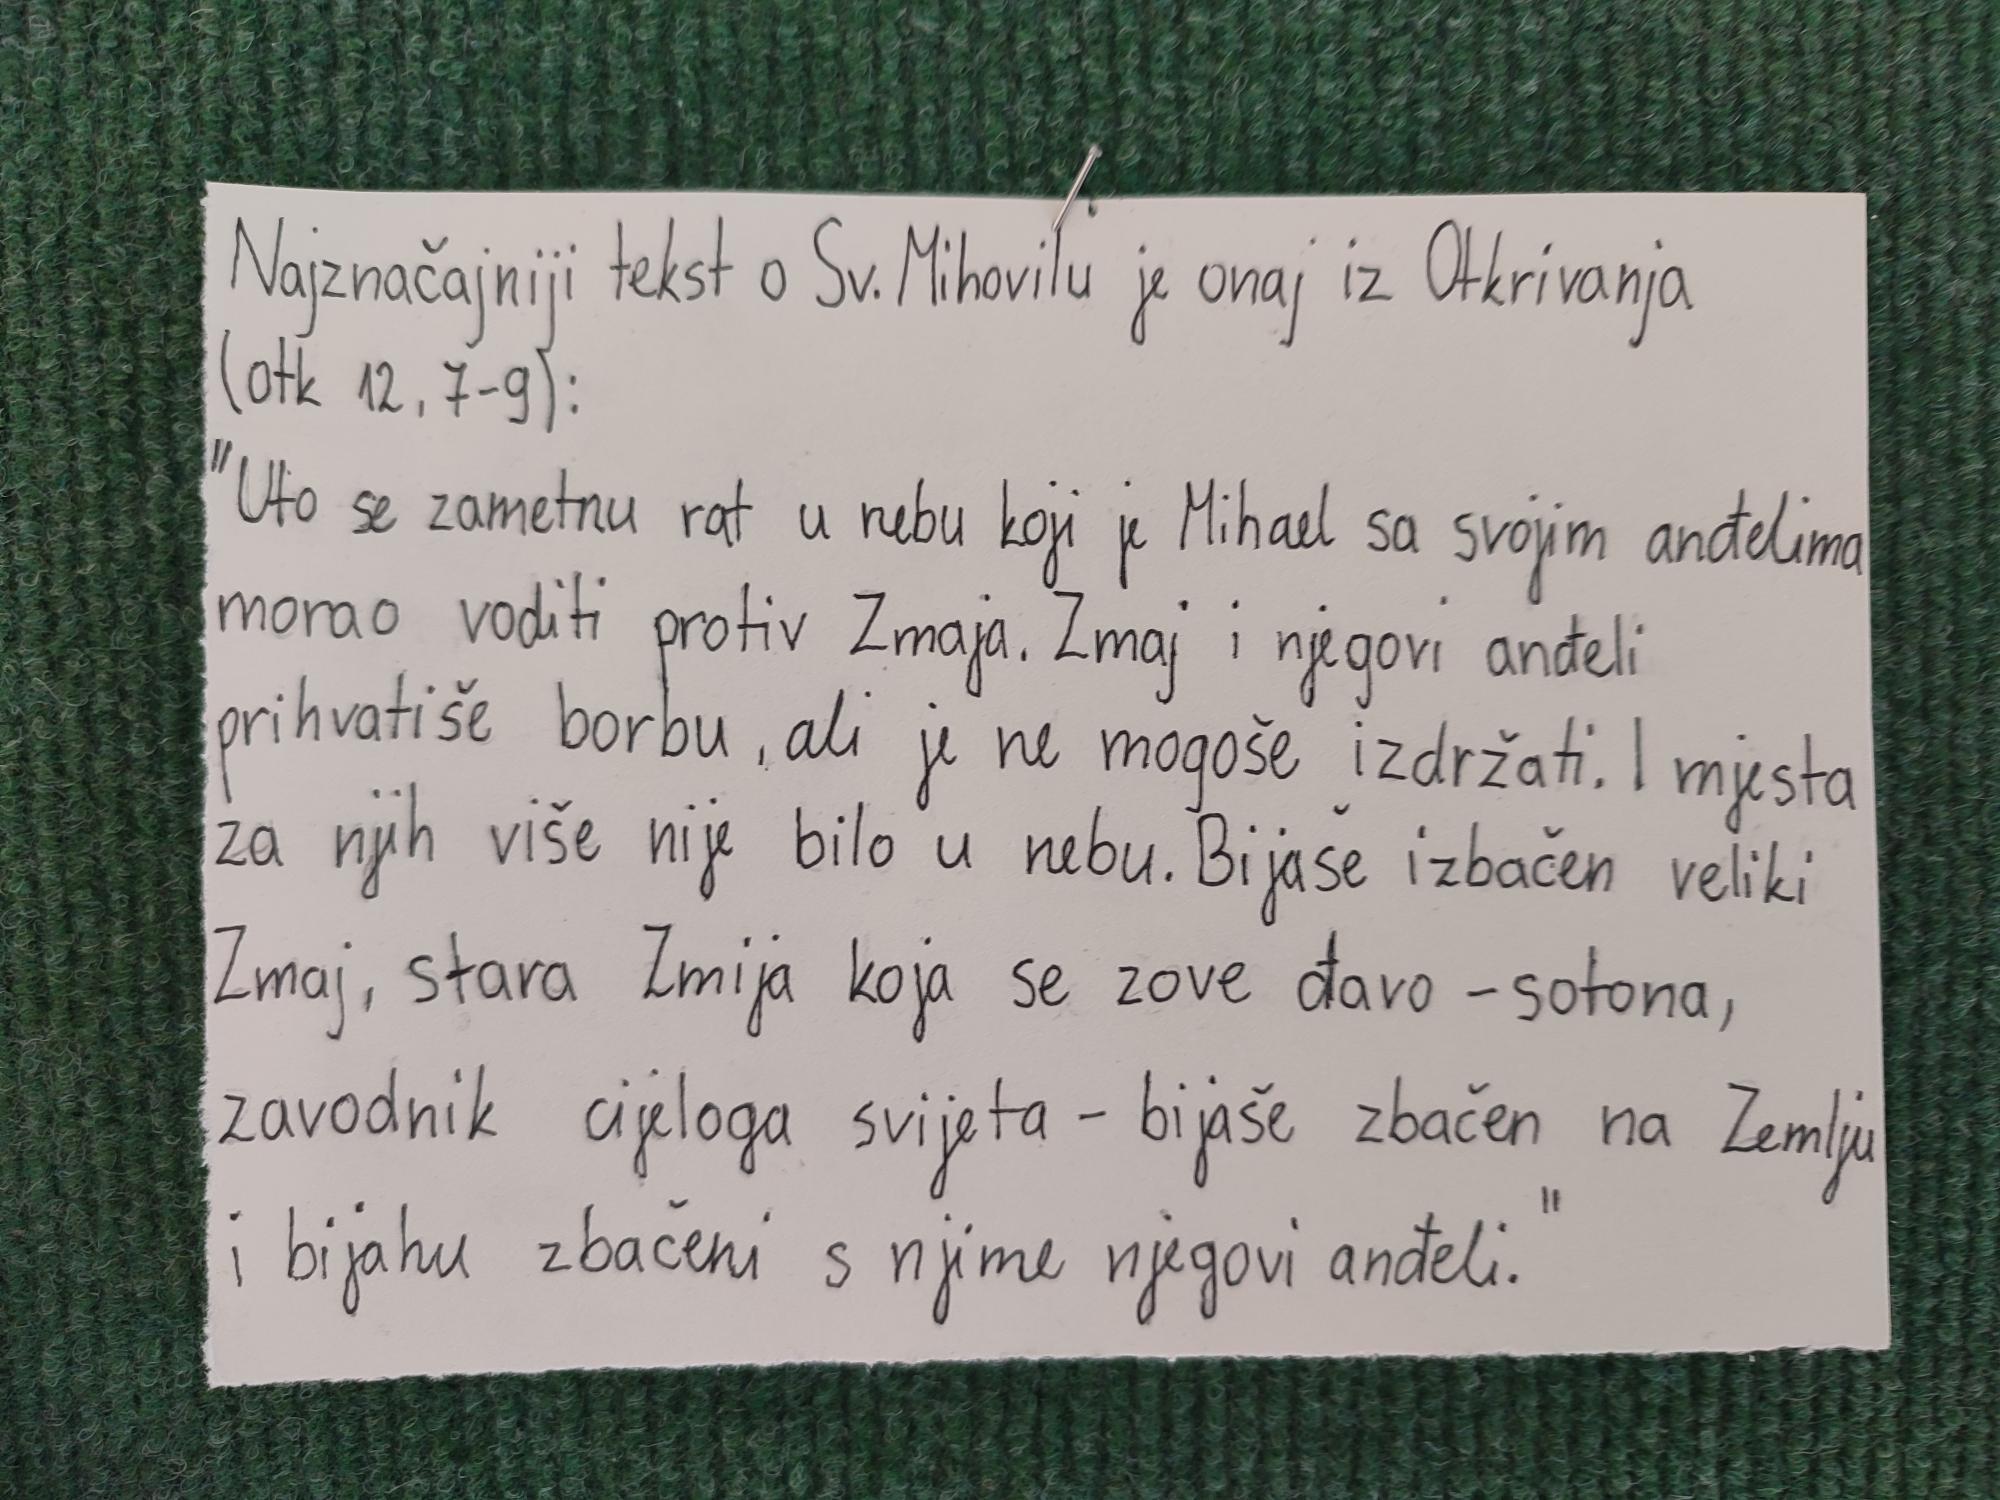 Najznačajniji tekst o Sv. Mihovilu je onaj iz Otkrivanja
(otk 12, 7-9):
"Uto se zametnu rat u nebu koji je Mihael sa svojim anđelima
morao voditi protiv Zmaja. Zmaj i njegovi anđeli
prihvatiše borbu, ali je ne mogoše izdržati. I mjesta
za njih više nije bilo u nebu. Bijaše izbačen veliki
Zmaj, stara Zmija koja se zove đavo - sotona,
zavodnik cijeloga svijeta - bijaše zbačen na Zemlju
i bijahu zbačeni s njime njegovi anđeli."